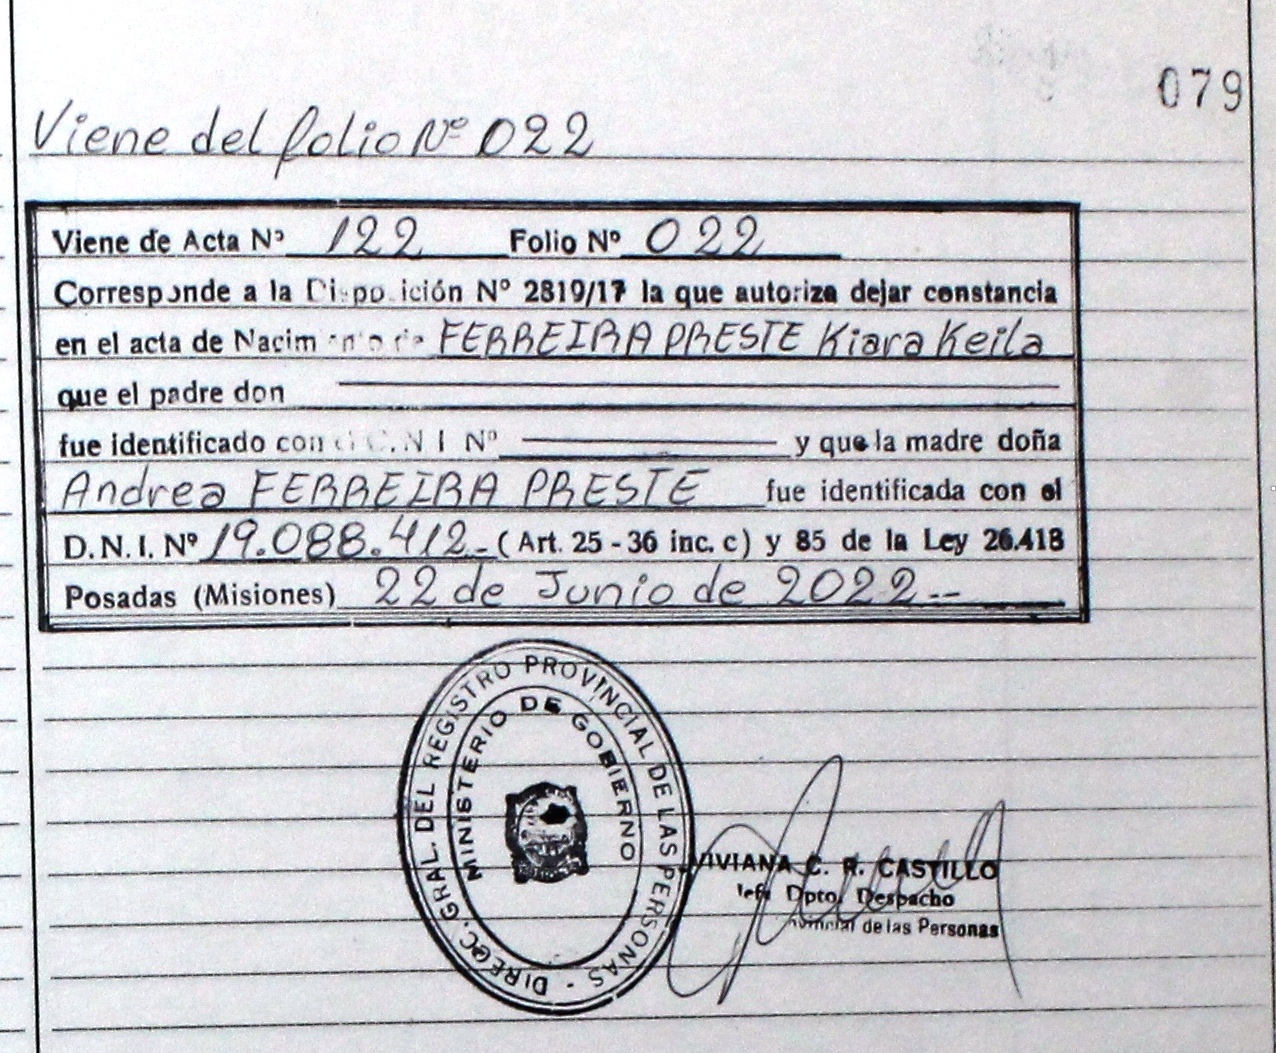 079
Viene del folio Nº 022
Viene de Acta Nº 122 Folio Nº 022
Corresponde a la Disposición Nº 2819/17 la que autoriza dejar constancia
en el acta de Nacimiento de FERREIRA PRESTE Kiara Keila
que el padre don
fue identificado con D.N.I Nº y que la madre doña
Andrea FERREIRA PRESTE fue identificada con el
D.N.I. Nº 19.088.412.- (Art. 25 - 36 inc. c) y 85 de la Ley 26.413
Posadas (Misiones) 22 de Junio de 2022.--
DIRECC. GRAL. DEL REGISTRO PROVINCIAL DE LAS PERSONAS -
MINISTERIO DE GOBIERNO
VIVIANA C. R. CASTILLO
Jefe Dpto. Despacho
Provincial de las Personas